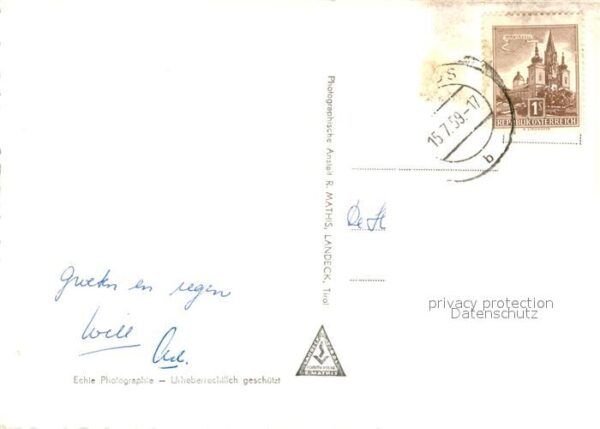 1 S
REPUBLIK ÖSTERREICH
15.7.59.-17
b
Photographische Anstalt R. MATHIS, LANDECK, Tirol
De H
Groeten en regen
Will
privacy protection
Datenschutz
R. MATHIS
Echte Photographie — Urheberrechtlich geschützt